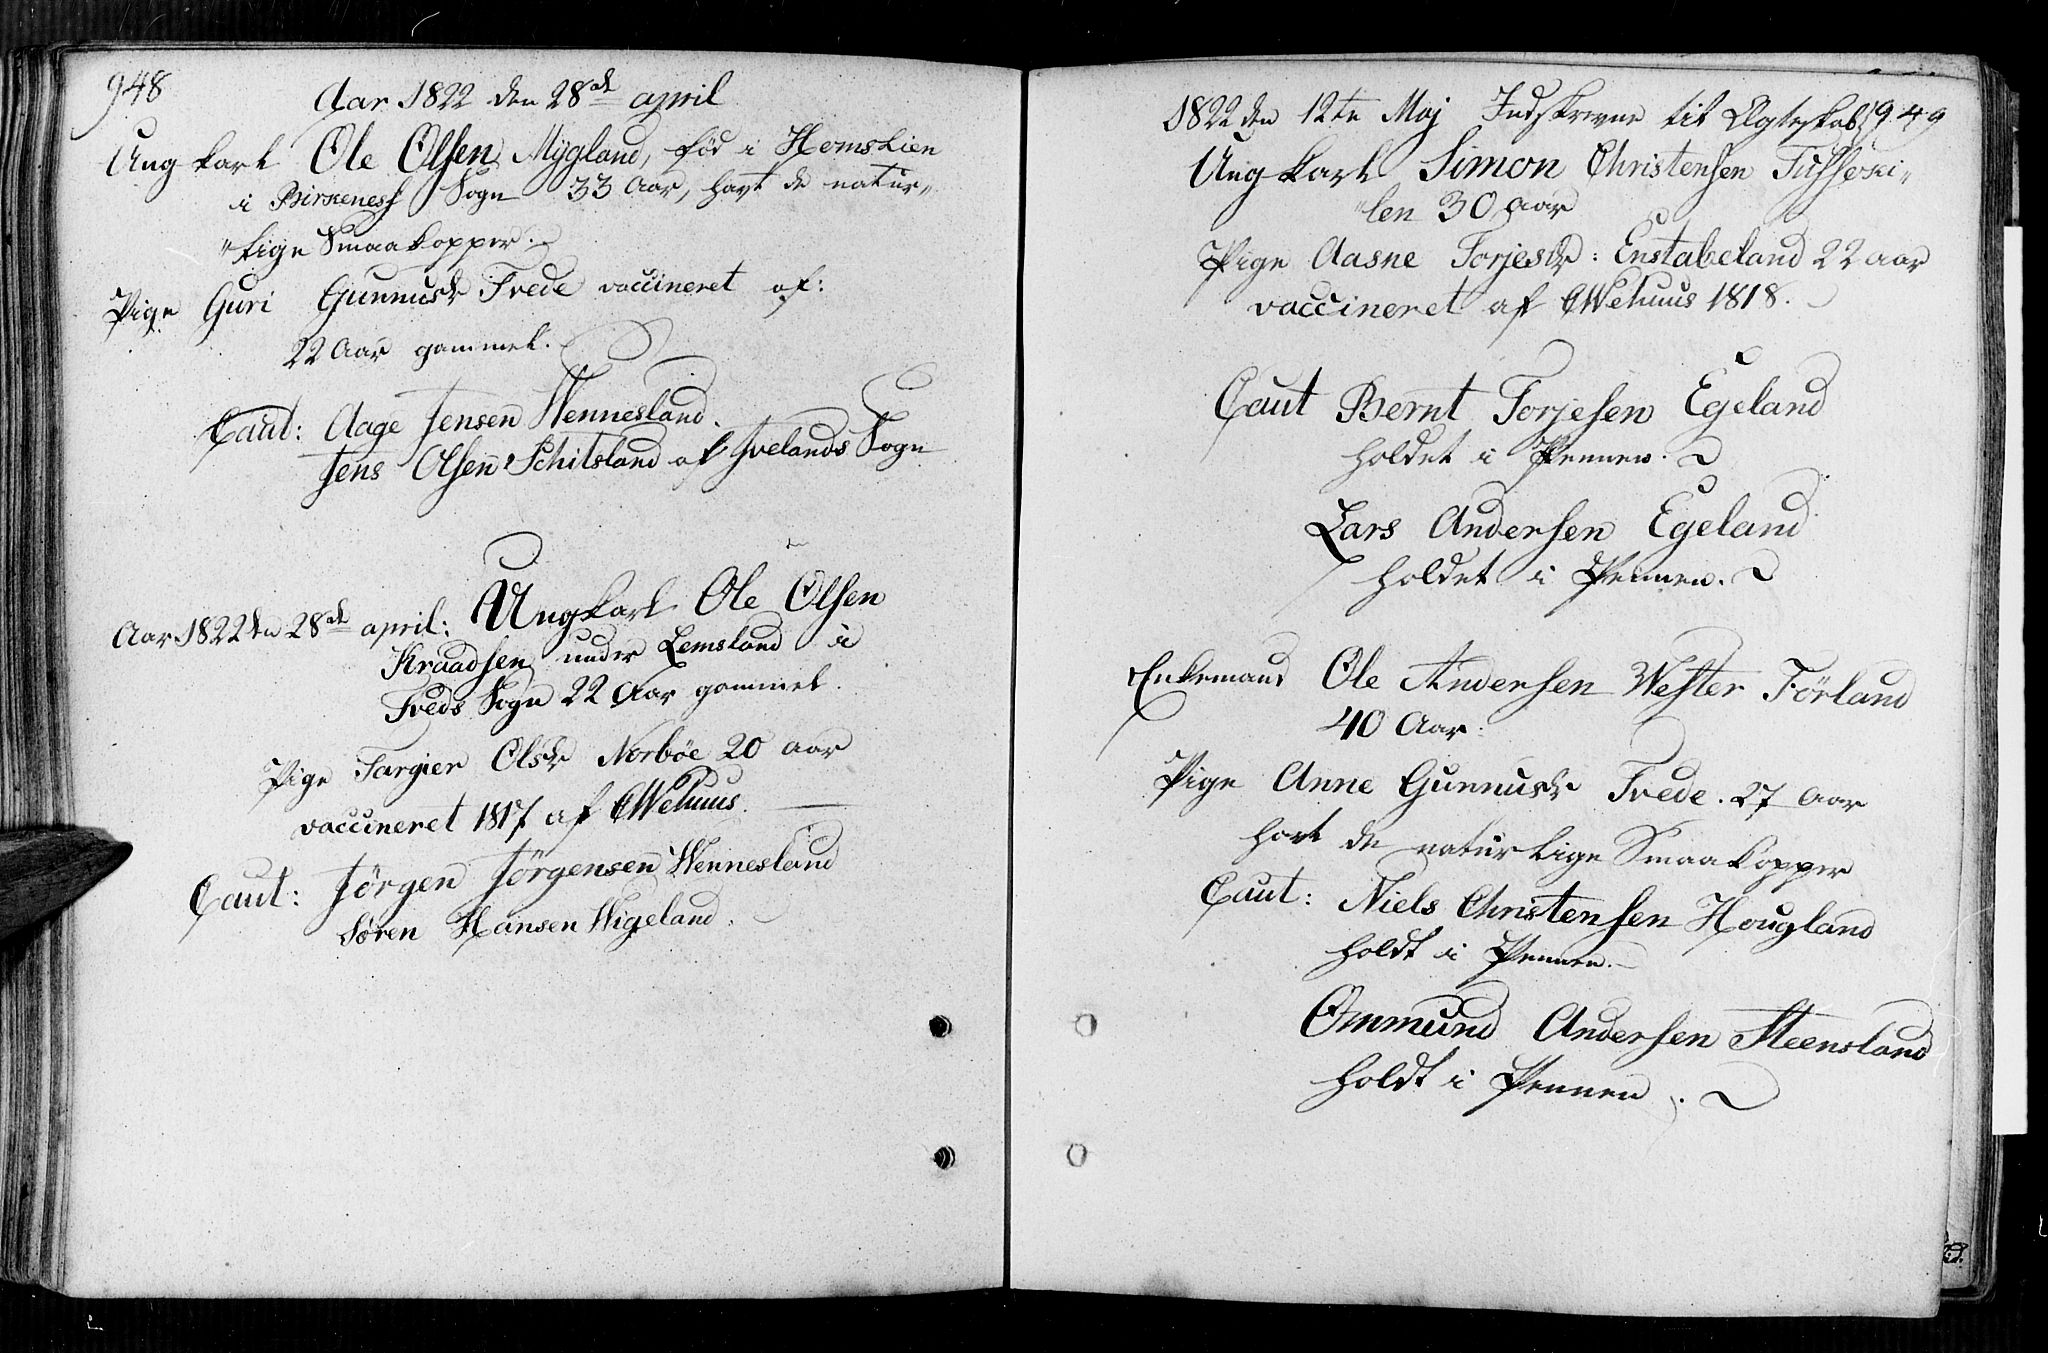 948
Aar 1822 den 28de april
Ung karl Ole Olsen Mÿgland, fød i Hemslien
i Birkeness Sogn 33 Aar, havt de natur„
„lige Smaakopper.
Pige Guri Gunnusdr Tvede vaccineret af:
22 Aar gammel.
Caut: Aage Jensen Wennesland.
Jens Olsen Schitsland af Ivelands Sogn
Aar 1822 den 28de april: Ungkarl Ole Olsen
Kraadsen under Lemsland i
Tveds Sogn 22 Aar gammel.
Pige Targier Olsdr Norbøe 20 aar
vaccineret 1817 af CWehuus.
Caut: Jørgen Jørgensen Wennesland
Søren Hansen Wigeland.
1822 den 12te Maj Indskrevne til Ægteskab 949
Ung karl Simon Christensen Tusseki„
„len 30 aar
Pige Aasne Torjesdr: Enstabeland 22 aar
vaccineret af CWehuus 1818.
Caut Bernt Torjesen Egeland
holdet i Pennen.
Lars Andersen Egeland
holdet i Pennen.
Enkemand Ole Andersen Wester Førland
40 Aar.
Pige Anne Gunnusdr Tvede. 27 Aar
havt de naturlige Smaakopper
Caut: Niels Christensen Hougland
holdt i Pennen.
Ommund Andersen Steensland
holdt i Pennen.